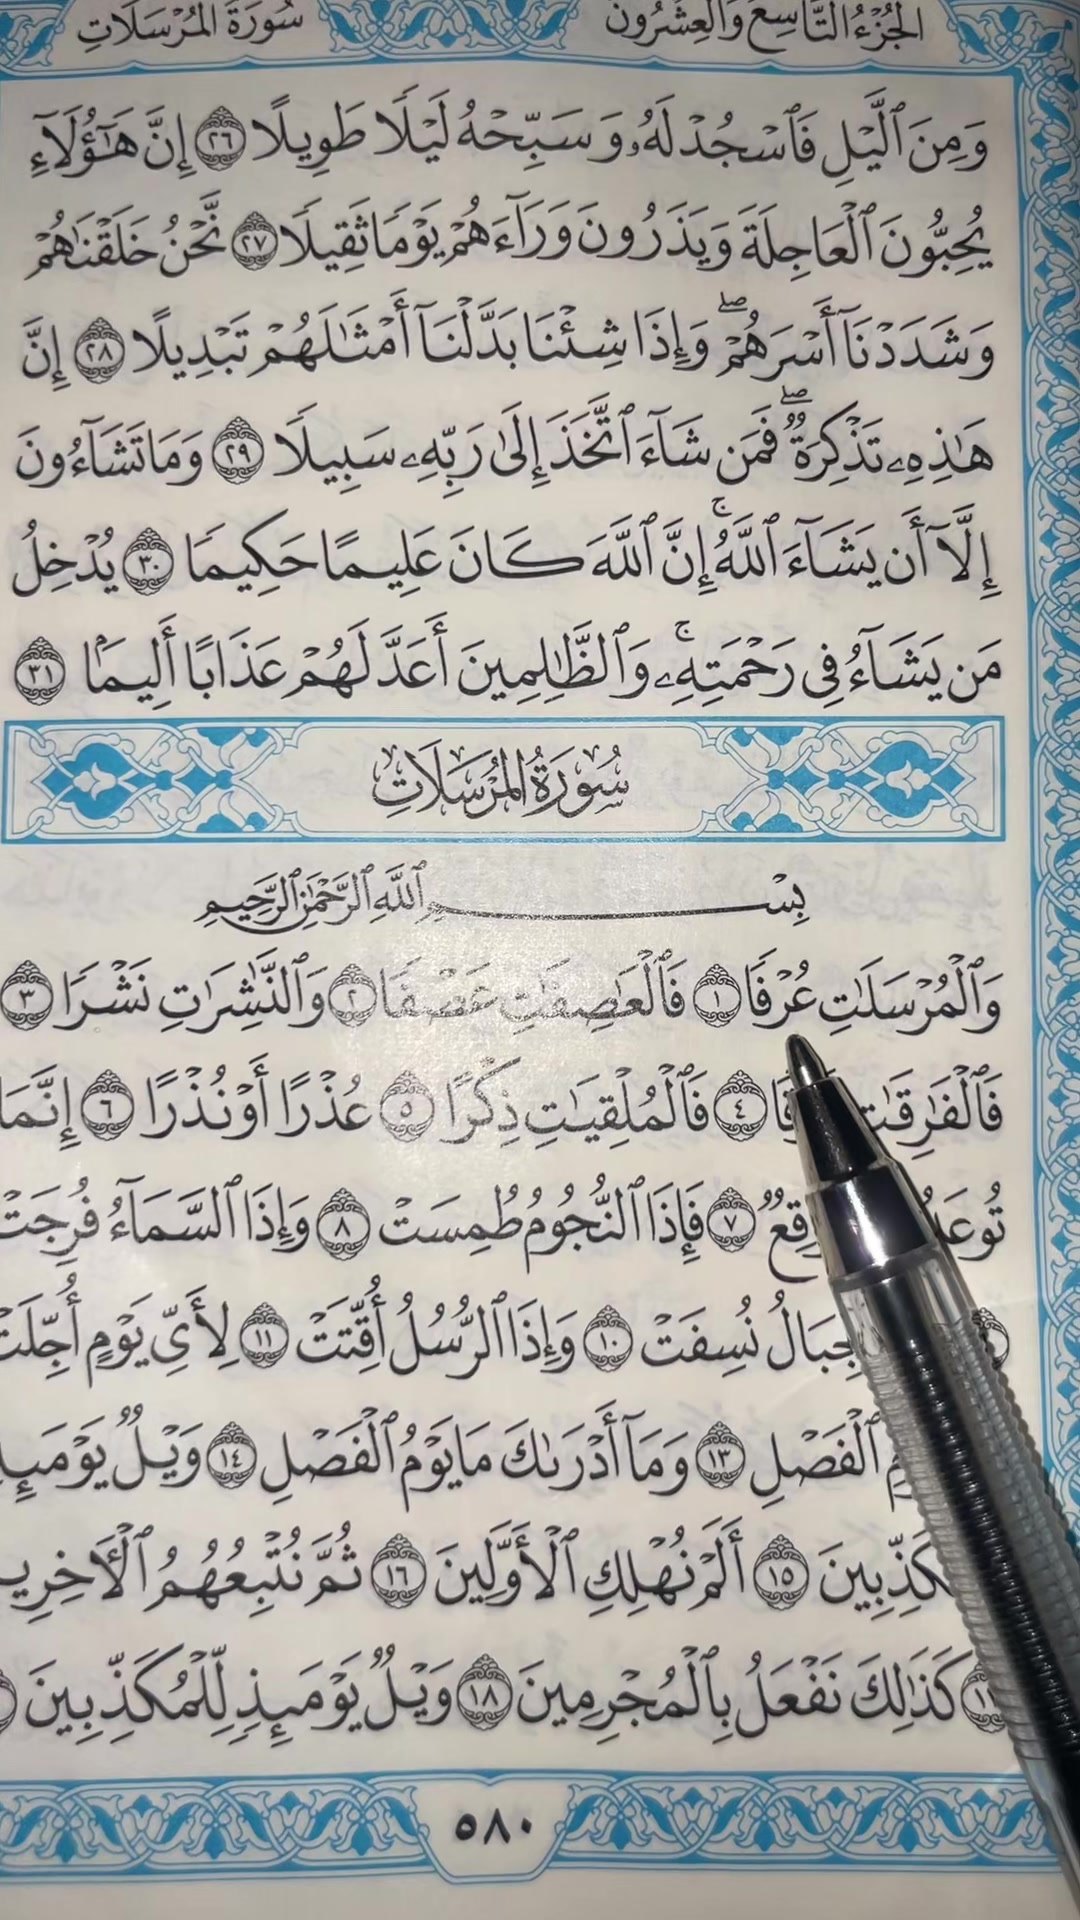 الجزء التاسع والعشرون
سورة المرسلات
وَمِنَ ٱلَّيْلِ فَٱسْجُدْ لَهُۥ وَسَبِّحْهُ لَيْلًا طَوِيلًا ٢٦ إِنَّ هَٰٓؤُلَآءِ
يُحِبُّونَ ٱلْعَاجِلَةَ وَيَذَرُونَ وَرَآءَهُمْ يَوْمًا ثَقِيلًا ٢٧ نَّحْنُ خَلَقْنَٰهُمْ
وَشَدَدْنَآ أَسْرَهُمْ ۖ وَإِذَا شِئْنَا بَدَّلْنَآ أَمْثَٰلَهُمْ تَبْدِيلًا ٢٨ إِنَّ
هَٰذِهِۦ تَذْكِرَةٌ ۖ فَمَن شَآءَ ٱتَّخَذَ إِلَىٰ رَبِّهِۦ سَبِيلًا ٢٩ وَمَا تَشَآءُونَ
إِلَّآ أَن يَشَآءَ ٱللَّهُ ۚ إِنَّ ٱللَّهَ كَانَ عَلِيمًا حَكِيمًا ٣٠ يُدْخِلُ
مَن يَشَآءُ فِى رَحْمَتِهِۦ ۚ وَٱلظَّٰلِمِينَ أَعَدَّ لَهُمْ عَذَابًا أَلِيمًۢا ٣١
سُورَةُ المُرْسَلَاتِ
بِسْمِ ٱللَّهِ ٱلرَّحْمَٰنِ ٱلرَّحِيمِ
وَٱلْمُرْسَلَٰتِ عُرْفًا ١ فَٱلْعَٰصِفَٰتِ عَصْفًا ٢ وَٱلنَّٰشِرَٰتِ نَشْرًا ٣
فَٱلْفَٰرِقَٰتِ ٤ فَٱلْمُلْقِيَٰتِ ذِكْرًا ٥ عُذْرًا أَوْ نُذْرًا ٦ إِنَّمَا
٧ فَإِذَا ٱلنُّجُومُ طُمِسَتْ ٨ وَإِذَا ٱلسَّمَآءُ فُرِجَتْ
نُسِفَتْ ١٠ وَإِذَا ٱلرُّسُلُ أُقِّتَتْ ١١ لِأَىِّ يَوْمٍ أُجِّلَتْ
ٱلْفَصْلِ ١٣ وَمَآ أَدْرَىٰكَ مَا يَوْمُ ٱلْفَصْلِ ١٤ وَيْلٌ
١٥ أَلَمْ نُهْلِكِ ٱلْأَوَّلِينَ ١٦ ثُمَّ نُتْبِعُهُمُ
كَذَٰلِكَ نَفْعَلُ بِٱلْمُجْرِمِينَ ١٨ وَيْلٌ يَوْمَئِذٍ لِّلْمُكَذِّبِينَ
٥٨٠